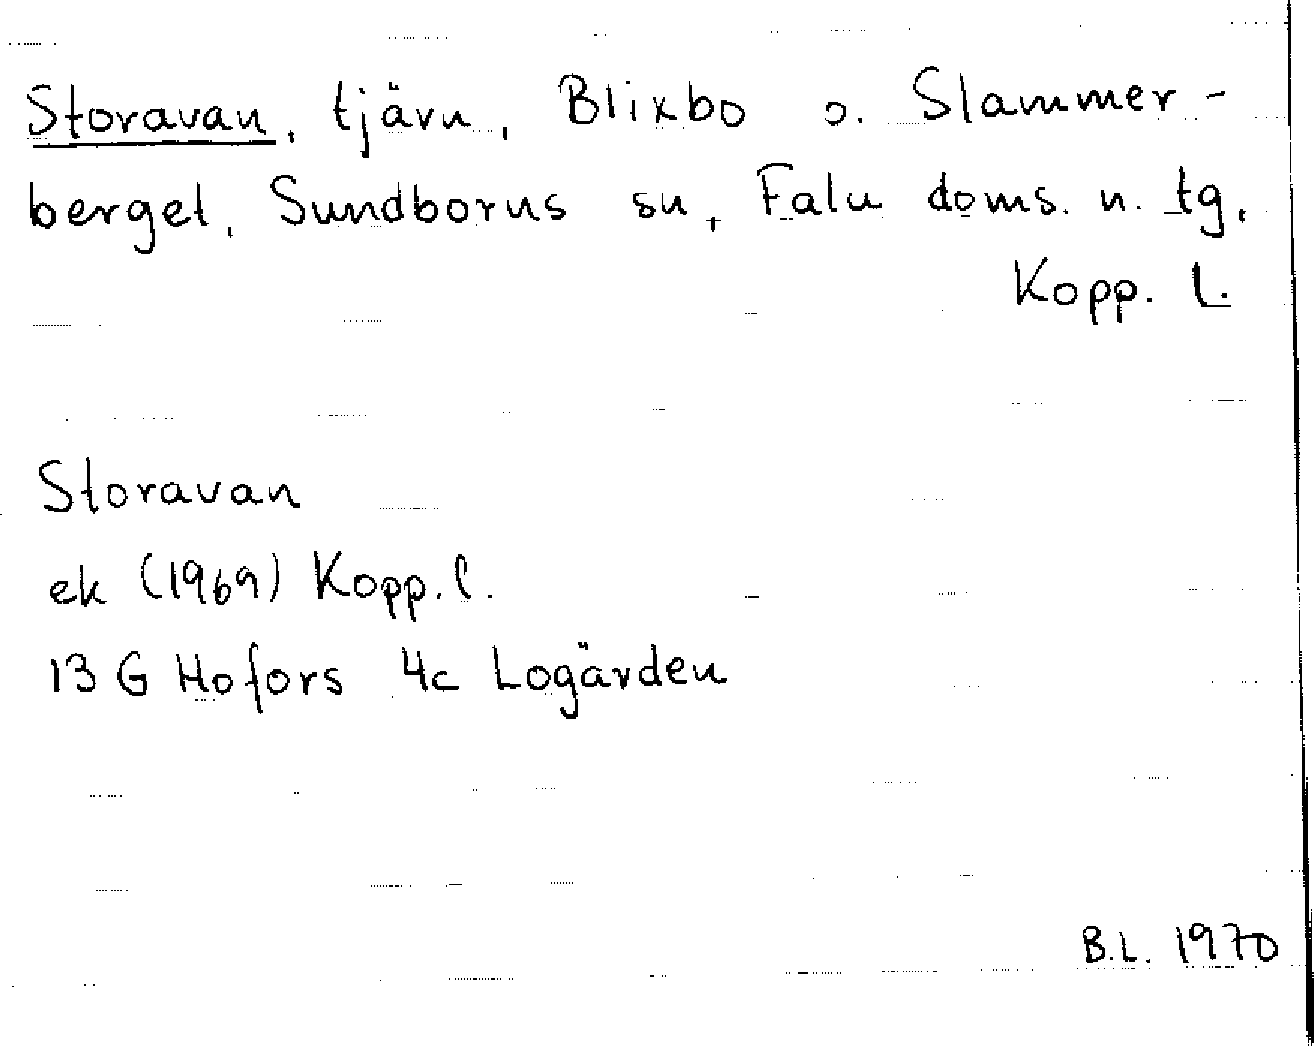 Storavan, tjärn, Blixbo o. Slammer-
berget, Sundborns sn, Falu doms. n. tg.
Kopp. L.
Storavan
ek (1969) Kopp. l.
13 G Hofors 4c Logärden
B.L. 1970